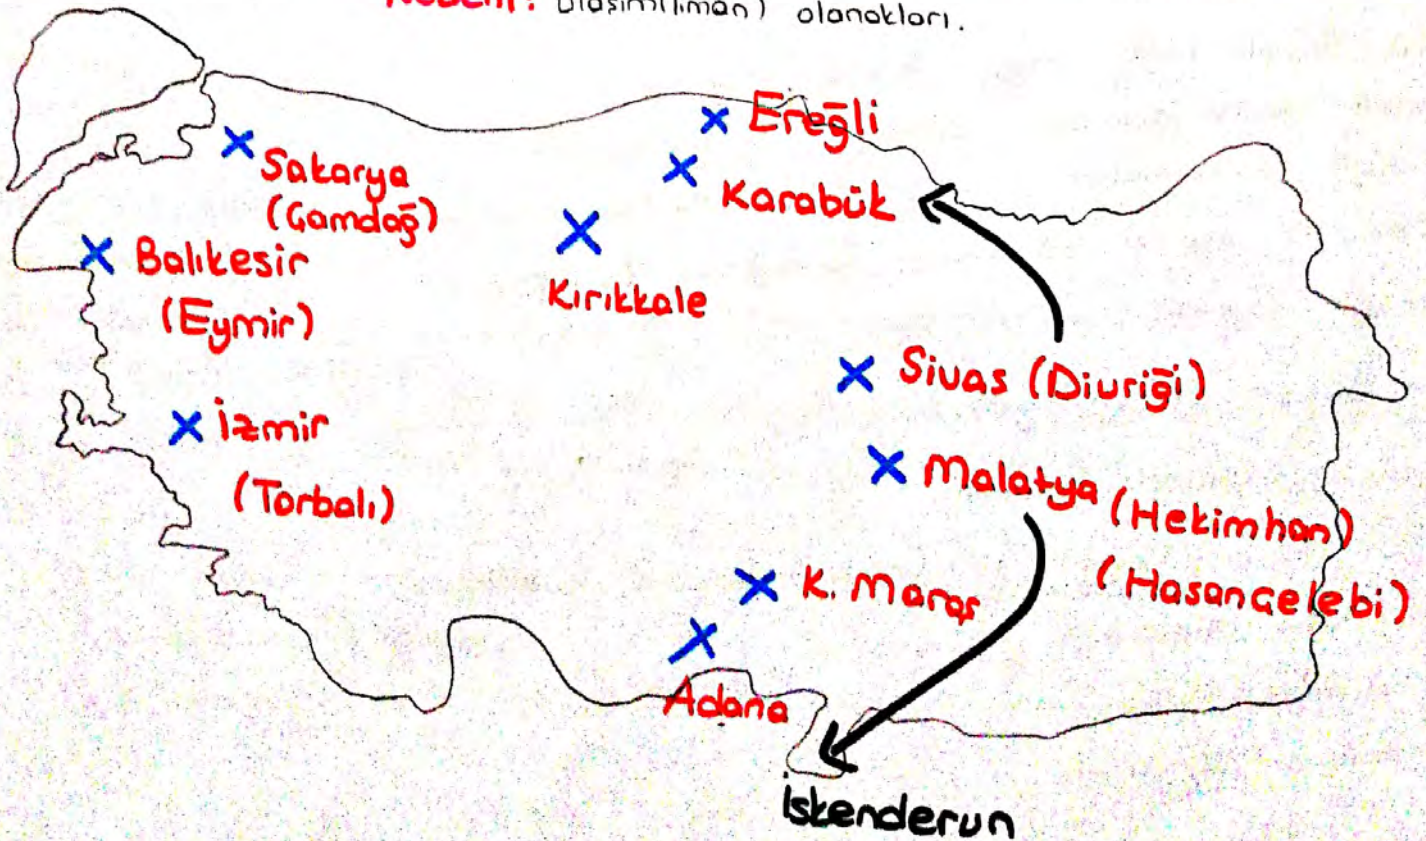 Nedeni: Ulaşım(liman) olanakları.
Ereğli
Sakarya
(Çamdağ)
Karabük
Balıkesir
(Eymir)
Kırıkkale
Sivas (Divriği)
İzmir
(Torbalı)
Malatya (Hekimhan)
(Hasançelebi)
K. Maraş
Adana
İskenderun